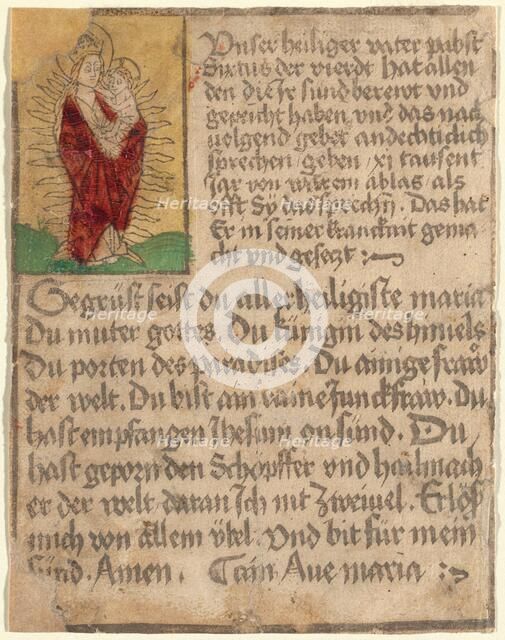 Unser heiliger vater pabst
Sixtus der vierdt hat allen
den die ir sund berewt und
gepeicht haben, und das nach
uolgend gebet andechticlich
sprechen, geben, xi tausent
jar von warem ablas, als
offt Sy das sprechn. Das hat
Er in seiner kranckait gema-
cht und gesetzt :~
Gegrüst seist du aller heiligiste maria
Du muter gottes. Du künigin des himels
Du porten des paradises. Du ainige fraw
der welt. Du bist ain raine Junckfraw. Du
hast empfangen Jhesum on sünd. Du
hast geporn den Schöpffer und hailmach
er der welt daran Ich nit Zweivel. Erlöß
mich von allem übel. Und bit für mein
Sünd. Amen. Ain Ave maria :~
Heritage
Heritage
Heritage
Heritage
Heritage
Heritage
Heritage
Heritage